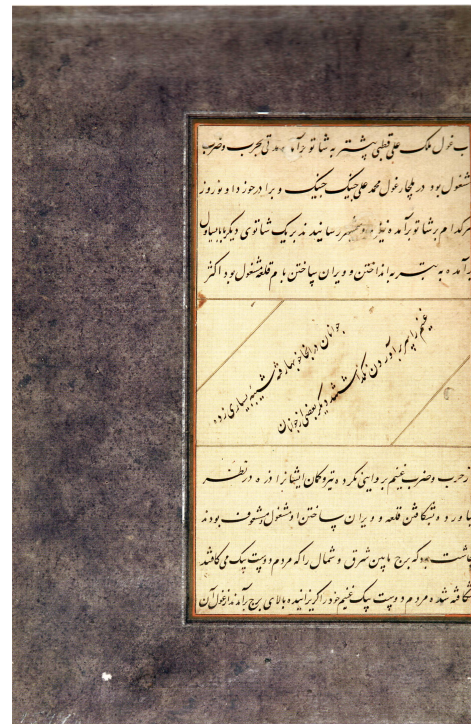 ب غول ملک علی قطبی پیشتر به شاتو برآمده مدتی بحرب وضرب
مشغول بود در ملچار غول محمد علی جینک جینک و برادر خورد او نوروز
هرکدام بر شاتو برآمده نیزه و شمشیر رسانیدند بر یک شاتوی دیگر بابا یساول
برآمده به تبر به انداختن و ویران ساختن بام قلعه مشغول بود اکثر
جوانان در انجا خوبها رفته شیبه بسیاری زده
غنیم را سر برآوردن نگذاشتند و دیگر بعضی از جوانان
از حرب وضرب غنیم پروایی نکرده تیر و کمان ایشانرا ذره در نظر
نیاورده و بشکافتن قلعه و ویران ساختن او مشغول و مشعوف بودند
چاشت بود که برج مابین شرق و شمال را که مردم دوست بیک می کافتند
شکافته شده مردم دوست بیک غنیم خود را گریزانیده بالای برج برآمدند از غول آن